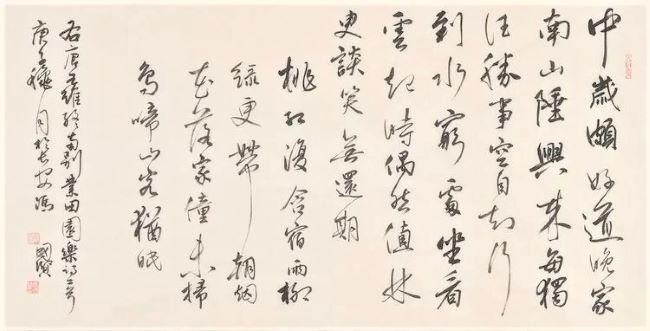 中歲頗好道晚家
南山陲興來每獨
往勝事空自知行
到水窮處坐看
雲起時偶然值林
叟談笑無還期
桃紅復含宿雨柳
綠更帶朝烟
花落家僮未掃
鳥啼山客猶眠
右唐王維終南別業田園樂詩二首
庚子穐月於長安馮